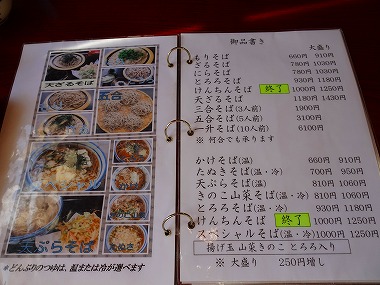 天ざるそば
五合
天ぷらそば
たぬき
※どんぶりのつゆは、温または冷が選べます
御品書き
大盛り
もりそば 660円 910円
ざるそば 780円 1030円
にらそば 780円 1030円
とろろそば 930円 1180円
けんちんそば 終了 1000円 1250円
天ざるそば 1180円 1430円
三合そば(3人前) 1900円
五合そば(5人前) 3100円
一升そば(10人前) 6100円
※ 何合でも承ります
かけそば(温) 660円 910円
たぬきそば(温・冷) 700円 950円
天ぷらそば(温) 810円 1060円
きのこ山菜そば(温・冷) 810円 1060円
とろろそば(温・冷) 930円 1180円
けんちんそば 終了 1000円 1250円
スペシャルそば(温・冷) 1000円 1250円
揚げ玉 山菜きのこ とろろ入り
※ 大盛り 250円増し